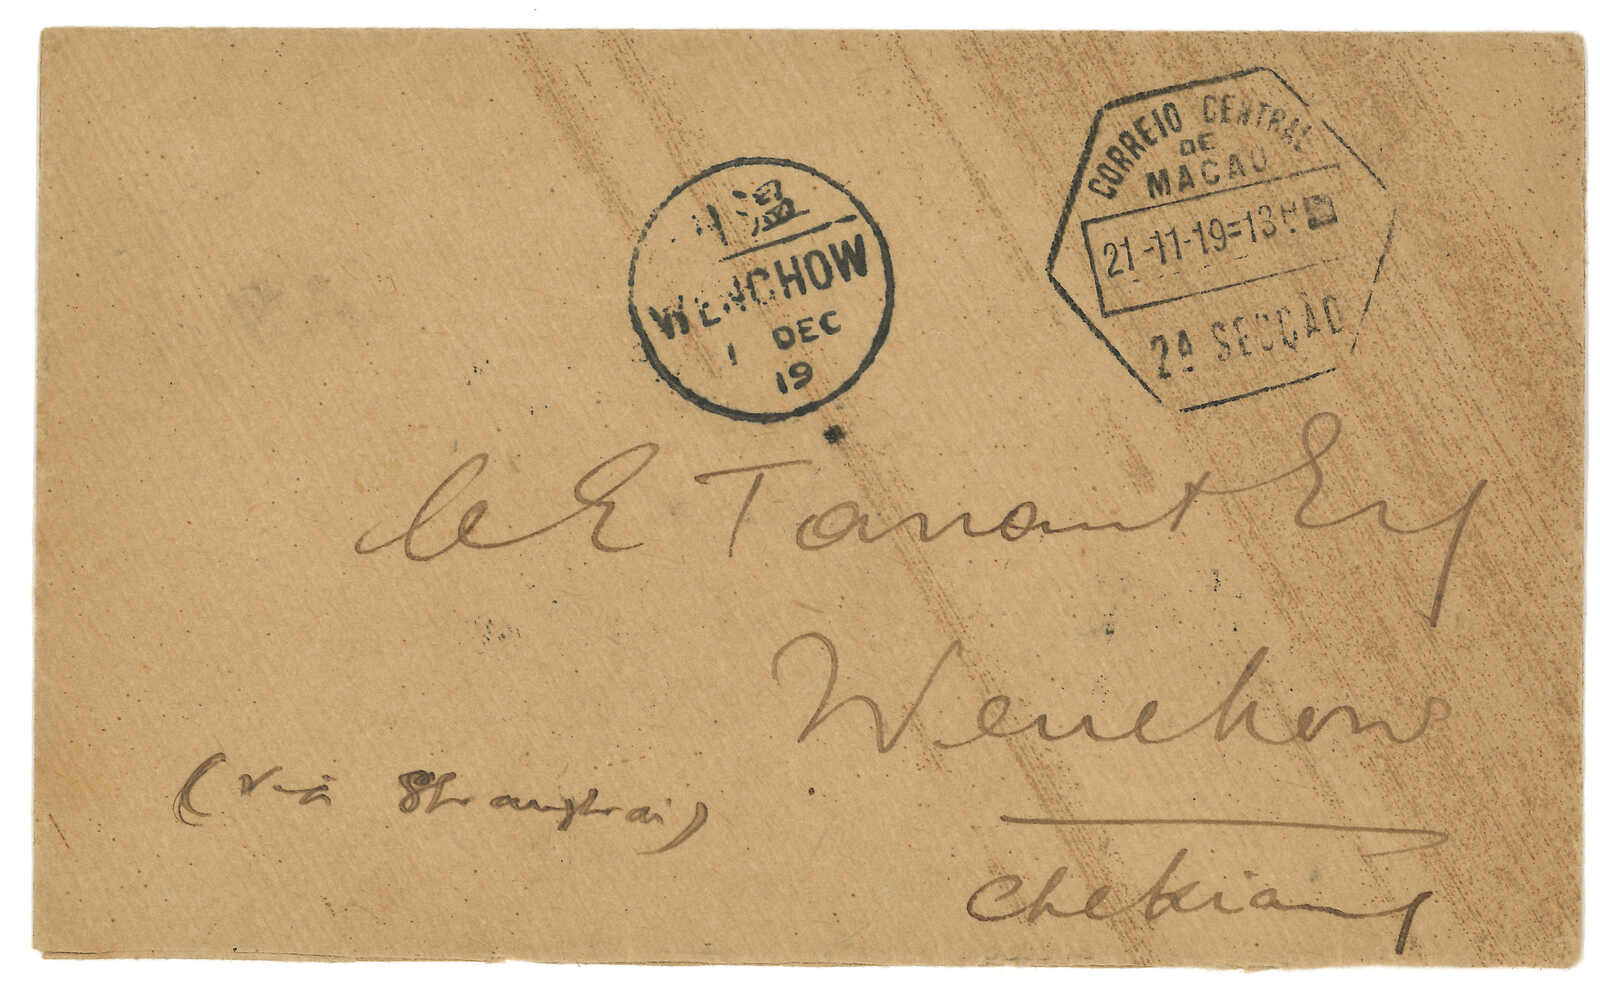 CORREIO CENTRAL
DE
MACAU
21-11-19=13H
2ª SECÇÃO
州溫
WENCHOW
1 DEC
19
C E Tanant Esq
Wenchow
(via Shanghai)
Chekiang